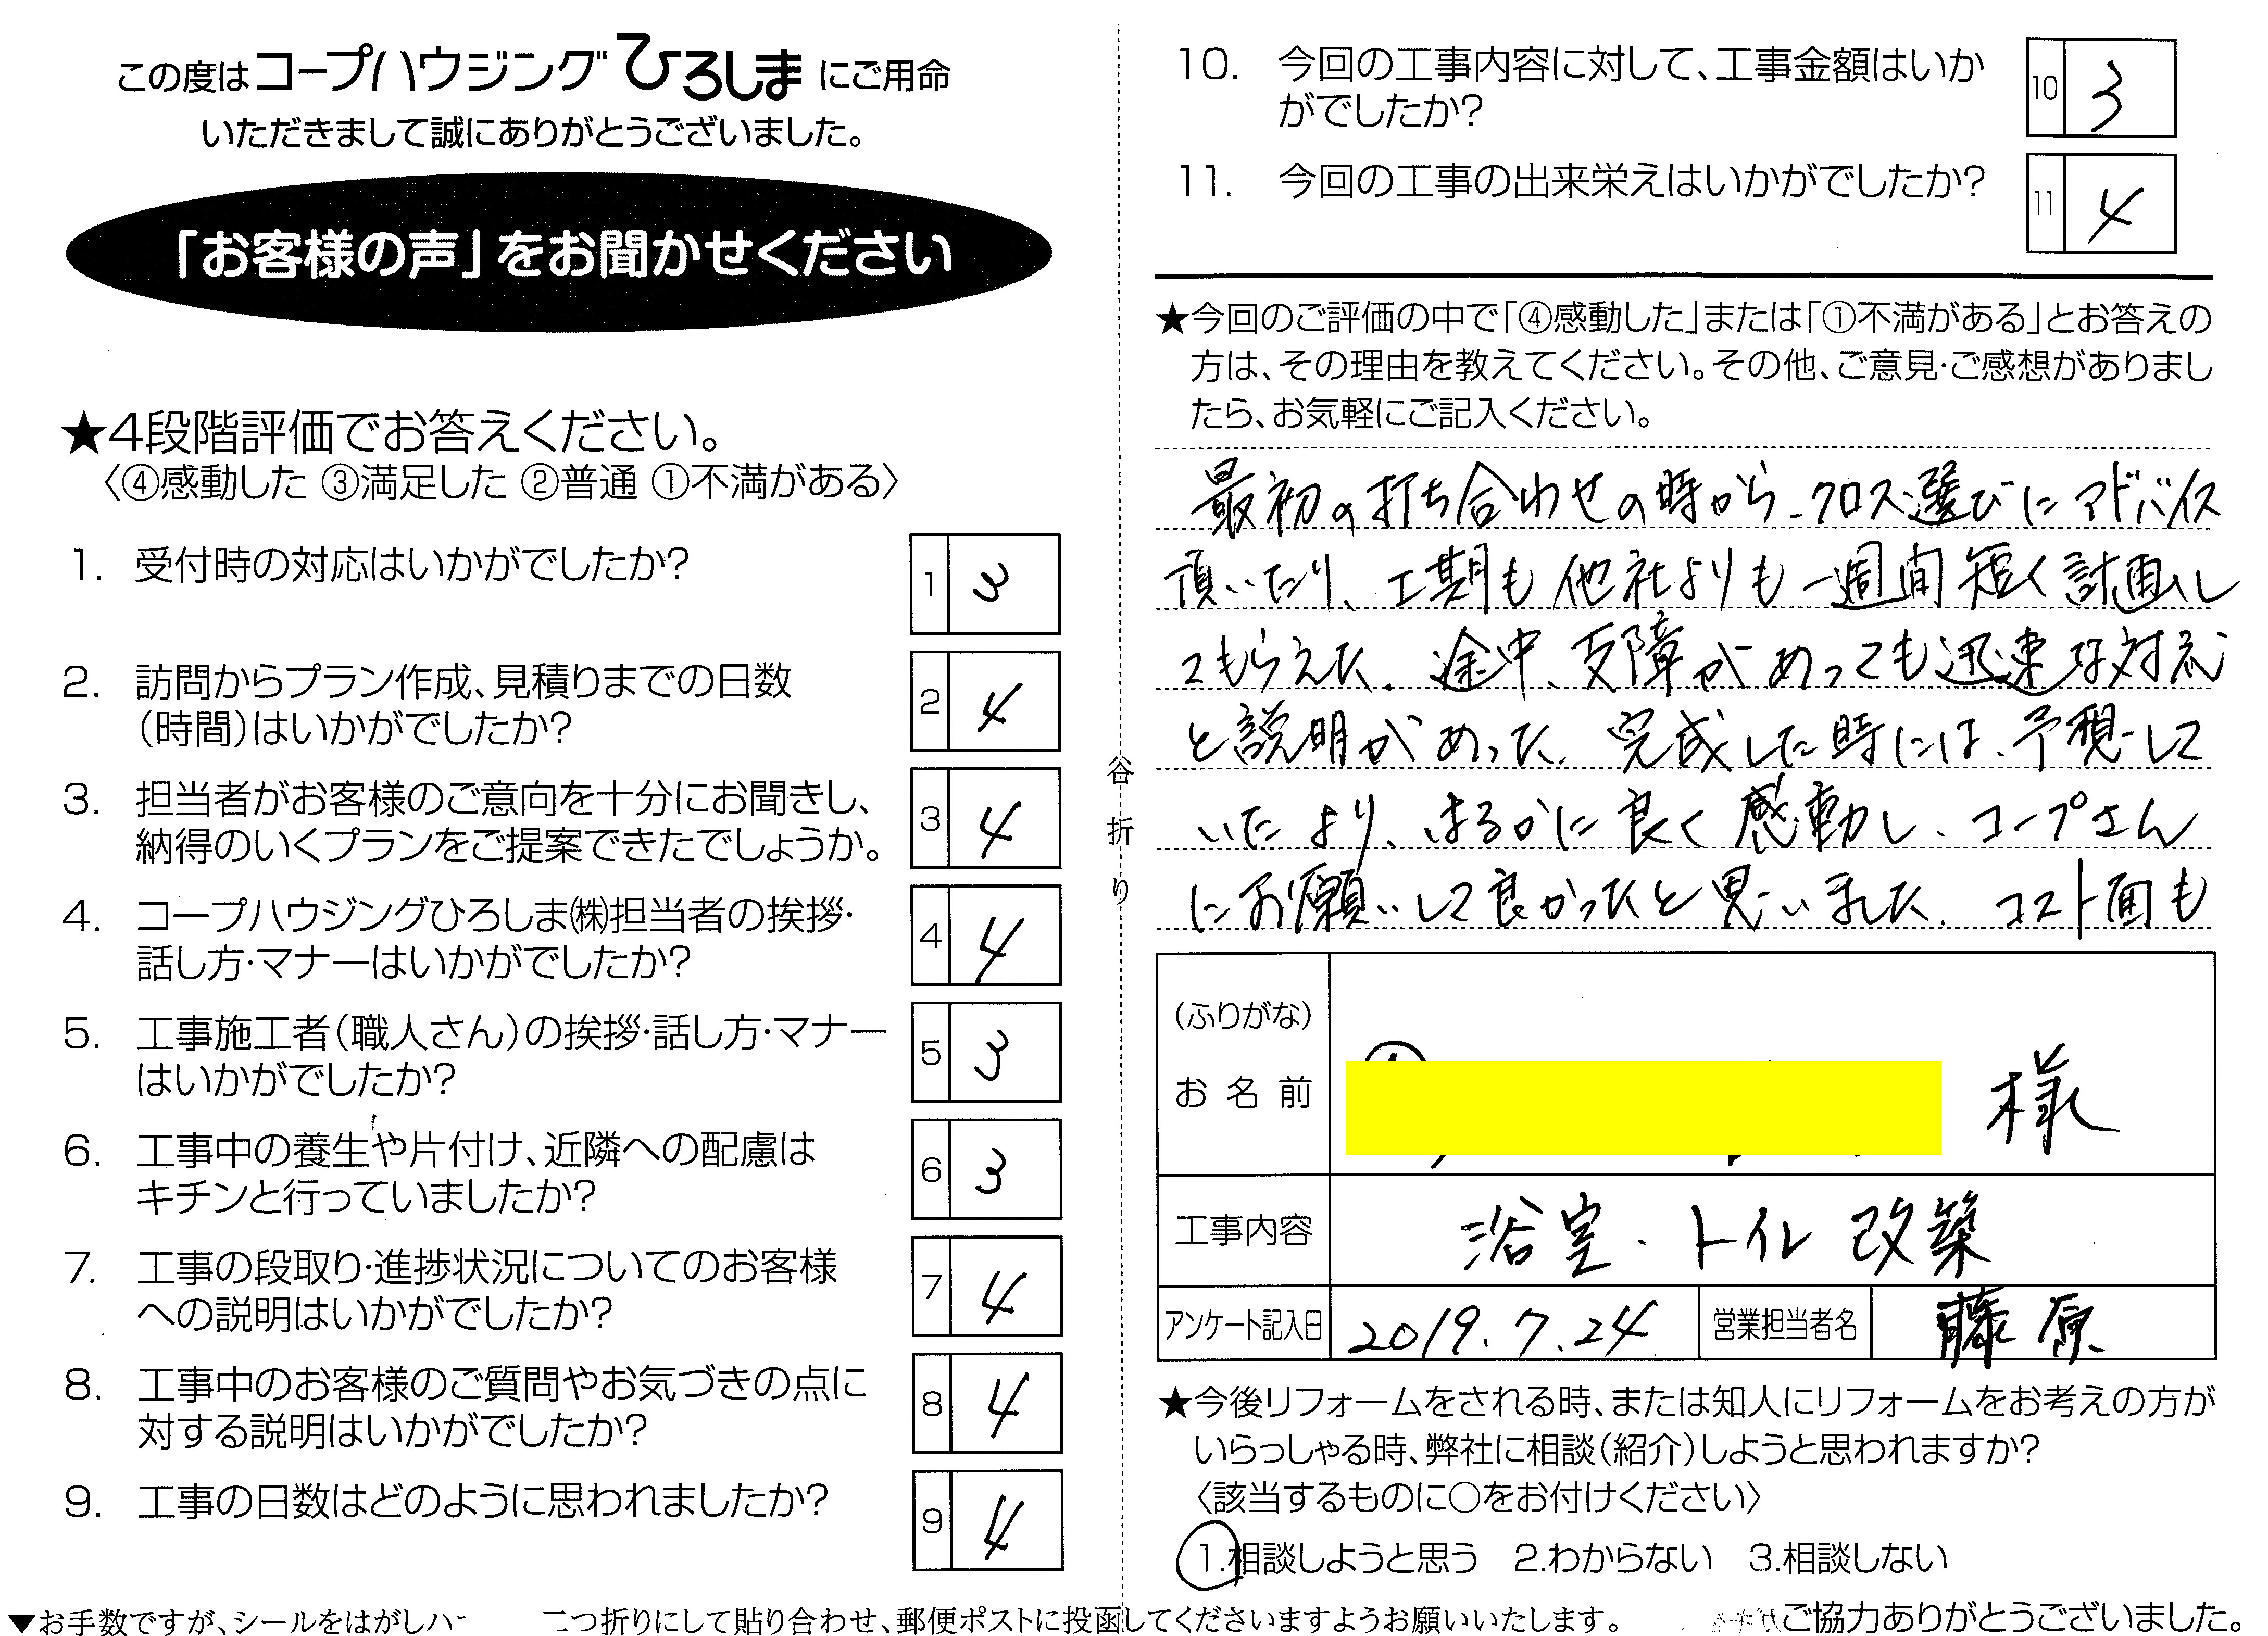 この度はコープハウジングひろしまにご用命
いただきまして誠にありがとうございました。
「お客様の声」をお聞かせください
★4段階評価でお答えください。
〈④感動した ③満足した ②普通 ①不満がある〉
1. 受付時の対応はいかがでしたか? 1 3
2. 訪問からプラン作成、見積りまでの日数
(時間)はいかがでしたか? 2 4
3. 担当者がお客様のご意向を十分にお聞きし、
納得のいくプランをご提案できたでしょうか。 3 4
4. コープハウジングひろしま㈱担当者の挨拶・
話し方・マナーはいかがでしたか? 4 4
5. 工事施工者(職人さん)の挨拶・話し方・マナー
はいかがでしたか? 5 3
6. 工事中の養生や片付け、近隣への配慮は
キチンと行っていましたか? 6 3
7. 工事の段取り・進捗状況についてのお客様
への説明はいかがでしたか? 7 4
8. 工事中のお客様のご質問やお気づきの点に
対する説明はいかがでしたか? 8 4
9. 工事の日数はどのように思われましたか? 9 4
谷折り
10. 今回の工事内容に対して、工事金額はいか
がでしたか? 10 3
11. 今回の工事の出来栄えはいかがでしたか? 11 4
★今回のご評価の中で「④感動した」または「①不満がある」とお答えの
方は、その理由を教えてください。その他、ご意見・ご感想がありまし
たら、お気軽にご記入ください。
最初の打ち合わせの時から、クロス選びにアドバイス
頂いたり、工期も他社よりも一週間短く計画し
てもらえた。途中、支障があっても迅速な対応
と説明があった。完成した時には、予想して
いたより、はるかに良く感動し、コープさん
にお願いして良かったと思いました。コスト面も
(ふりがな)
お名前 様
工事内容 浴室・トイレ改築
アンケート記入日 2019.7.24 営業担当者名 藤原
★今後リフォームをされる時、または知人にリフォームをお考えの方が
いらっしゃる時、弊社に相談(紹介)しようと思われますか?
〈該当するものに○をお付けください〉
1.相談しようと思う 2.わからない 3.相談しない
▼お手数ですが、シールをはがし 二つ折りにして貼り合わせ、郵便ポストに投函してくださいますようお願いいたします。 ご協力ありがとうございました。